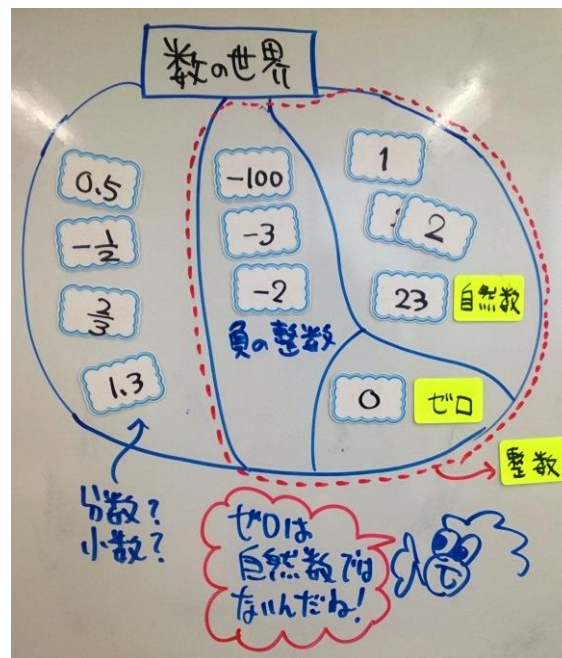 数の世界
0.5
-1/2
2/3
1.3
-100
-3
-2
負の整数
1
2
23
自然数
0
ゼロ
整数
分数?
小数?
ゼロは
自然数では
ないんだね!